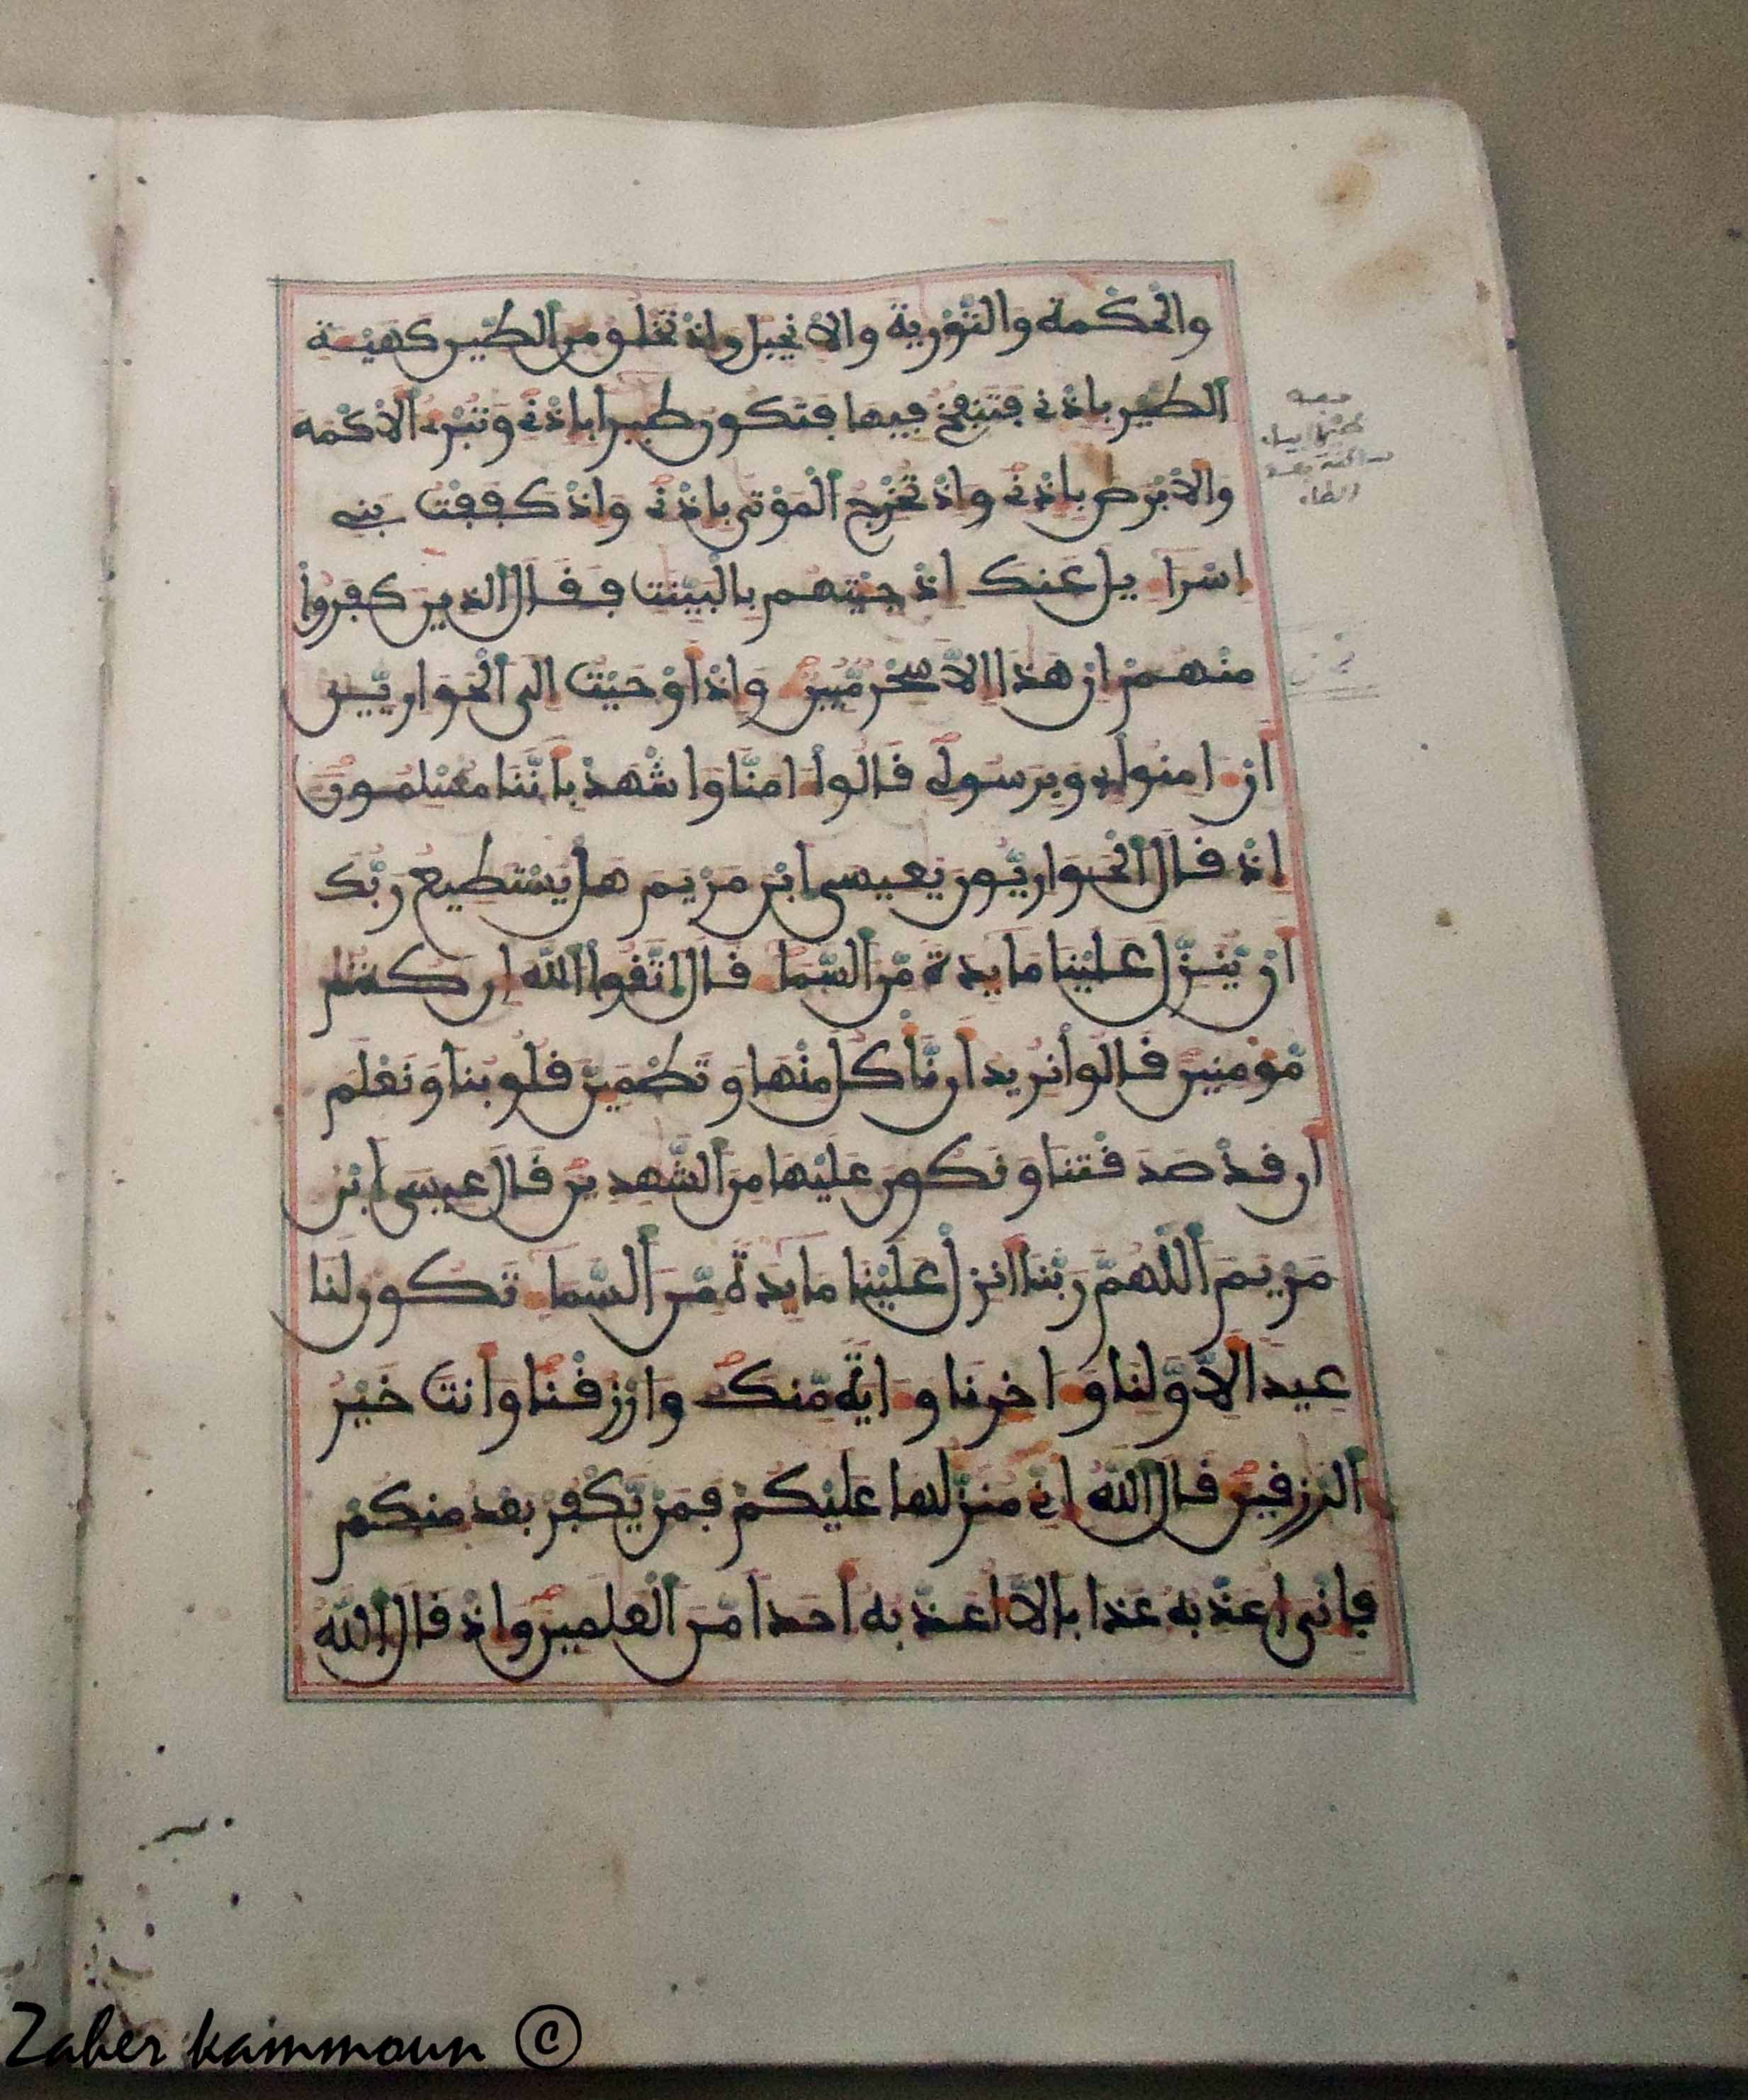 والحكمة والتورية والانجيل واذ تخلق من الطير كهية
الطير باذني فتنفخ فيها فتكون طيرا باذني وتبرئ الاكمه
والابرص باذني واذ تخرج الموتى باذني واذ كففت بني
اسراءيل عنك اذ جيتهم بالبينت فقال الذين كفروا
منهم ان هذا الا سحر مبين واذ اوحيت الى الحواريين
ان امنوا بي وبرسولي قالوا امنا واشهد باننا مسلمون
اذ قال الحواريون يعيسى ابن مريم هل يستطيع ربك
ان ينزل علينا مايدة من السما قال اتقوا الله ان كنتم
مومنين قالوا نريد ان ناكل منها وتطمين قلوبنا ونعلم
ان قد صدقتنا ونكون عليها من الشهدين قال عيسى ابن
مريم اللهم ربنا انزل علينا مايدة من السما تكون لنا
عيدا لاولنا واخرنا واية منك وارزقنا وانت خير
الرزقين قال الله اني منزلها عليكم فمن يكفر بعد منكم
فاني اعذبه عذابا لا اعذبه احدا من العلمين واذ قال الله
Zaher kammoun ©